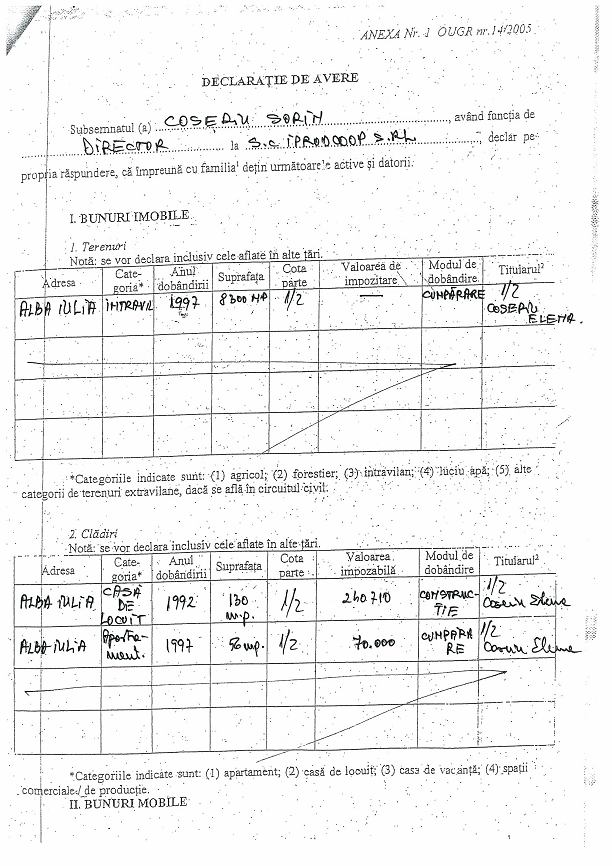 ANEXA Nr. 1 OUGR nr.14/2005
DECLARAŢIE DE AVERE
Subsemnatul (a) COSERIU SORIN, având funcţia de
DIRECTOR la S.C. IPRODCOOP S.R.L, declar pe
propria răspundere, că împreună cu familia¹ deţin următoarele active şi datorii:
I. BUNURI IMOBILE
1. Terenuri
Notă: se vor declara inclusiv cele aflate în alte ţări.
Adresa Cate-goria* Anul dobândirii Suprafaţa Cota parte Valoarea de impozitare Modul de dobândire Titularul²
ALBA IULIA INTRAVIL 1997 8300 MP 1/2 — CUMPĂRARE 1/2 COSERIU ELENA.
*Categoriile indicate sunt: (1) agricol; (2) forestier; (3) intravilan; (4) luciu apă; (5) alte
categorii de terenuri extravilane, dacă se află în circuitul civil.
2. Clădiri
Notă: se vor declara inclusiv cele aflate în alte ţări.
Adresa Cate-goria* Anul dobândirii Suprafaţa Cota parte Valoarea impozabilă Modul de dobândire Titularul²
ALBA IULIA CASA DE LOCUIT 1992 130 m.p. 1/2 240710 CONSTRUC-TIE 1/2 Coseriu Elena
ALBA-IULIA Aparta-ment. 1997 mp. 1/2 70.000 CUMPARA RE 1/2 Coseriu Elena
*Categoriile indicate sunt: (1) apartament; (2) casă de locuit; (3) casă de vacanţă; (4) spaţii
comerciale / de producţie.
II. BUNURI MOBILE